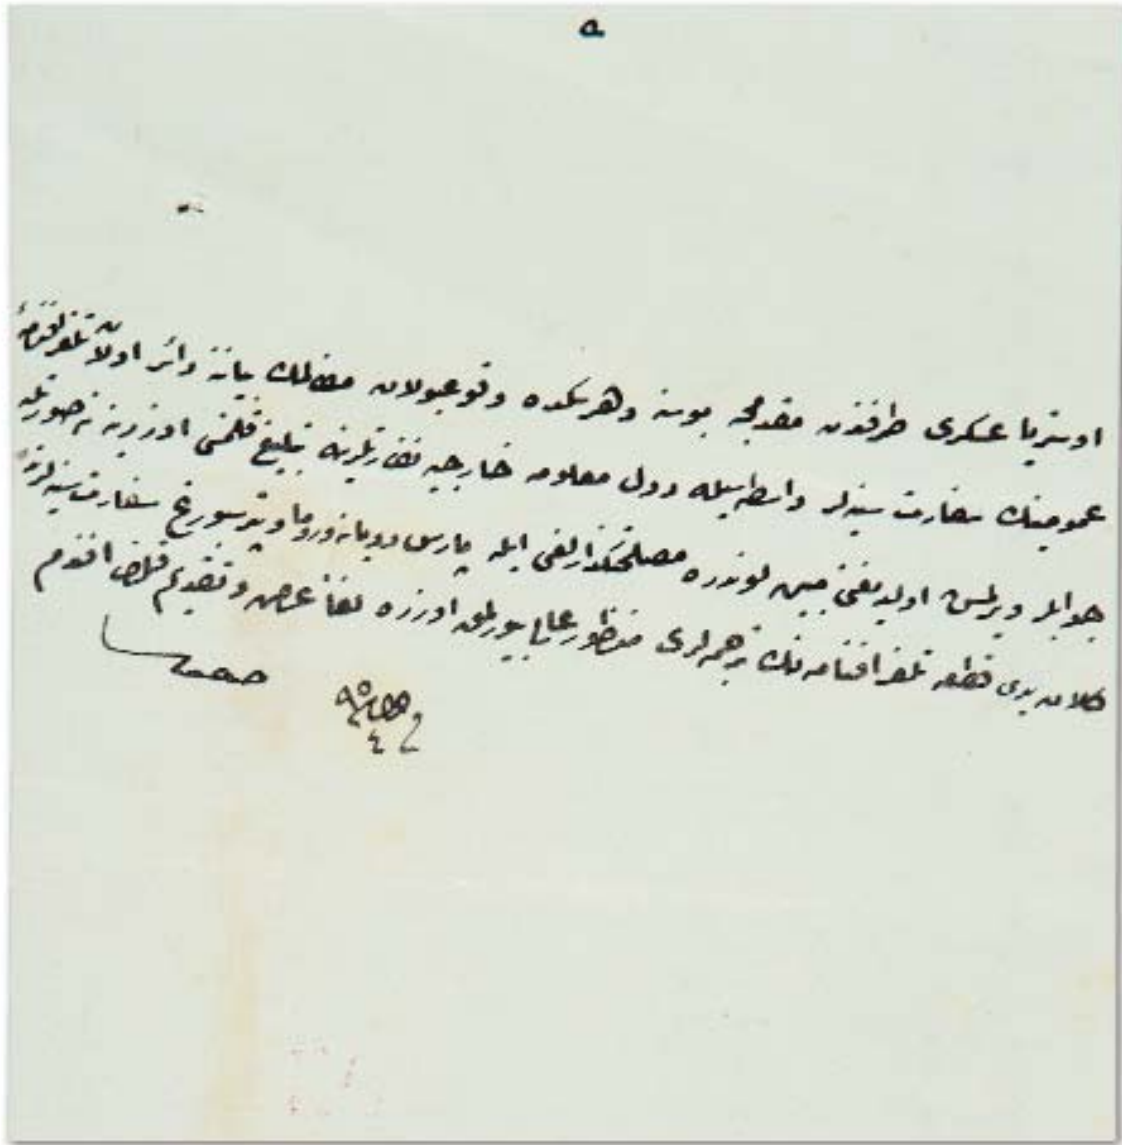 اوستریا عسكری طرفندن مقدمجه بوسنه و هرسكده وقوعبولان مظالمك بیاننه دائر اولان تلغرافنامهٔ
عمومینك سفارت سنیه‌لر واسطه‌سیله دول معلومه خارجیه نظارتلرینه تبلیغ قلنمسی اوزرینه نه صورتله
جوابلر ویرلمش اولدیغنی مبین لوندره مصلحتكذارلغی ایله پارس و ویانه و روما و پترسبورغ سفارت سنیه‌لرندن
كلان یدی قطعه تلغرافنامه‌نك ترجمه‌لری منظور عالی بیورلمق اوزره لفاً عرض و تقدیم قلندی افندم